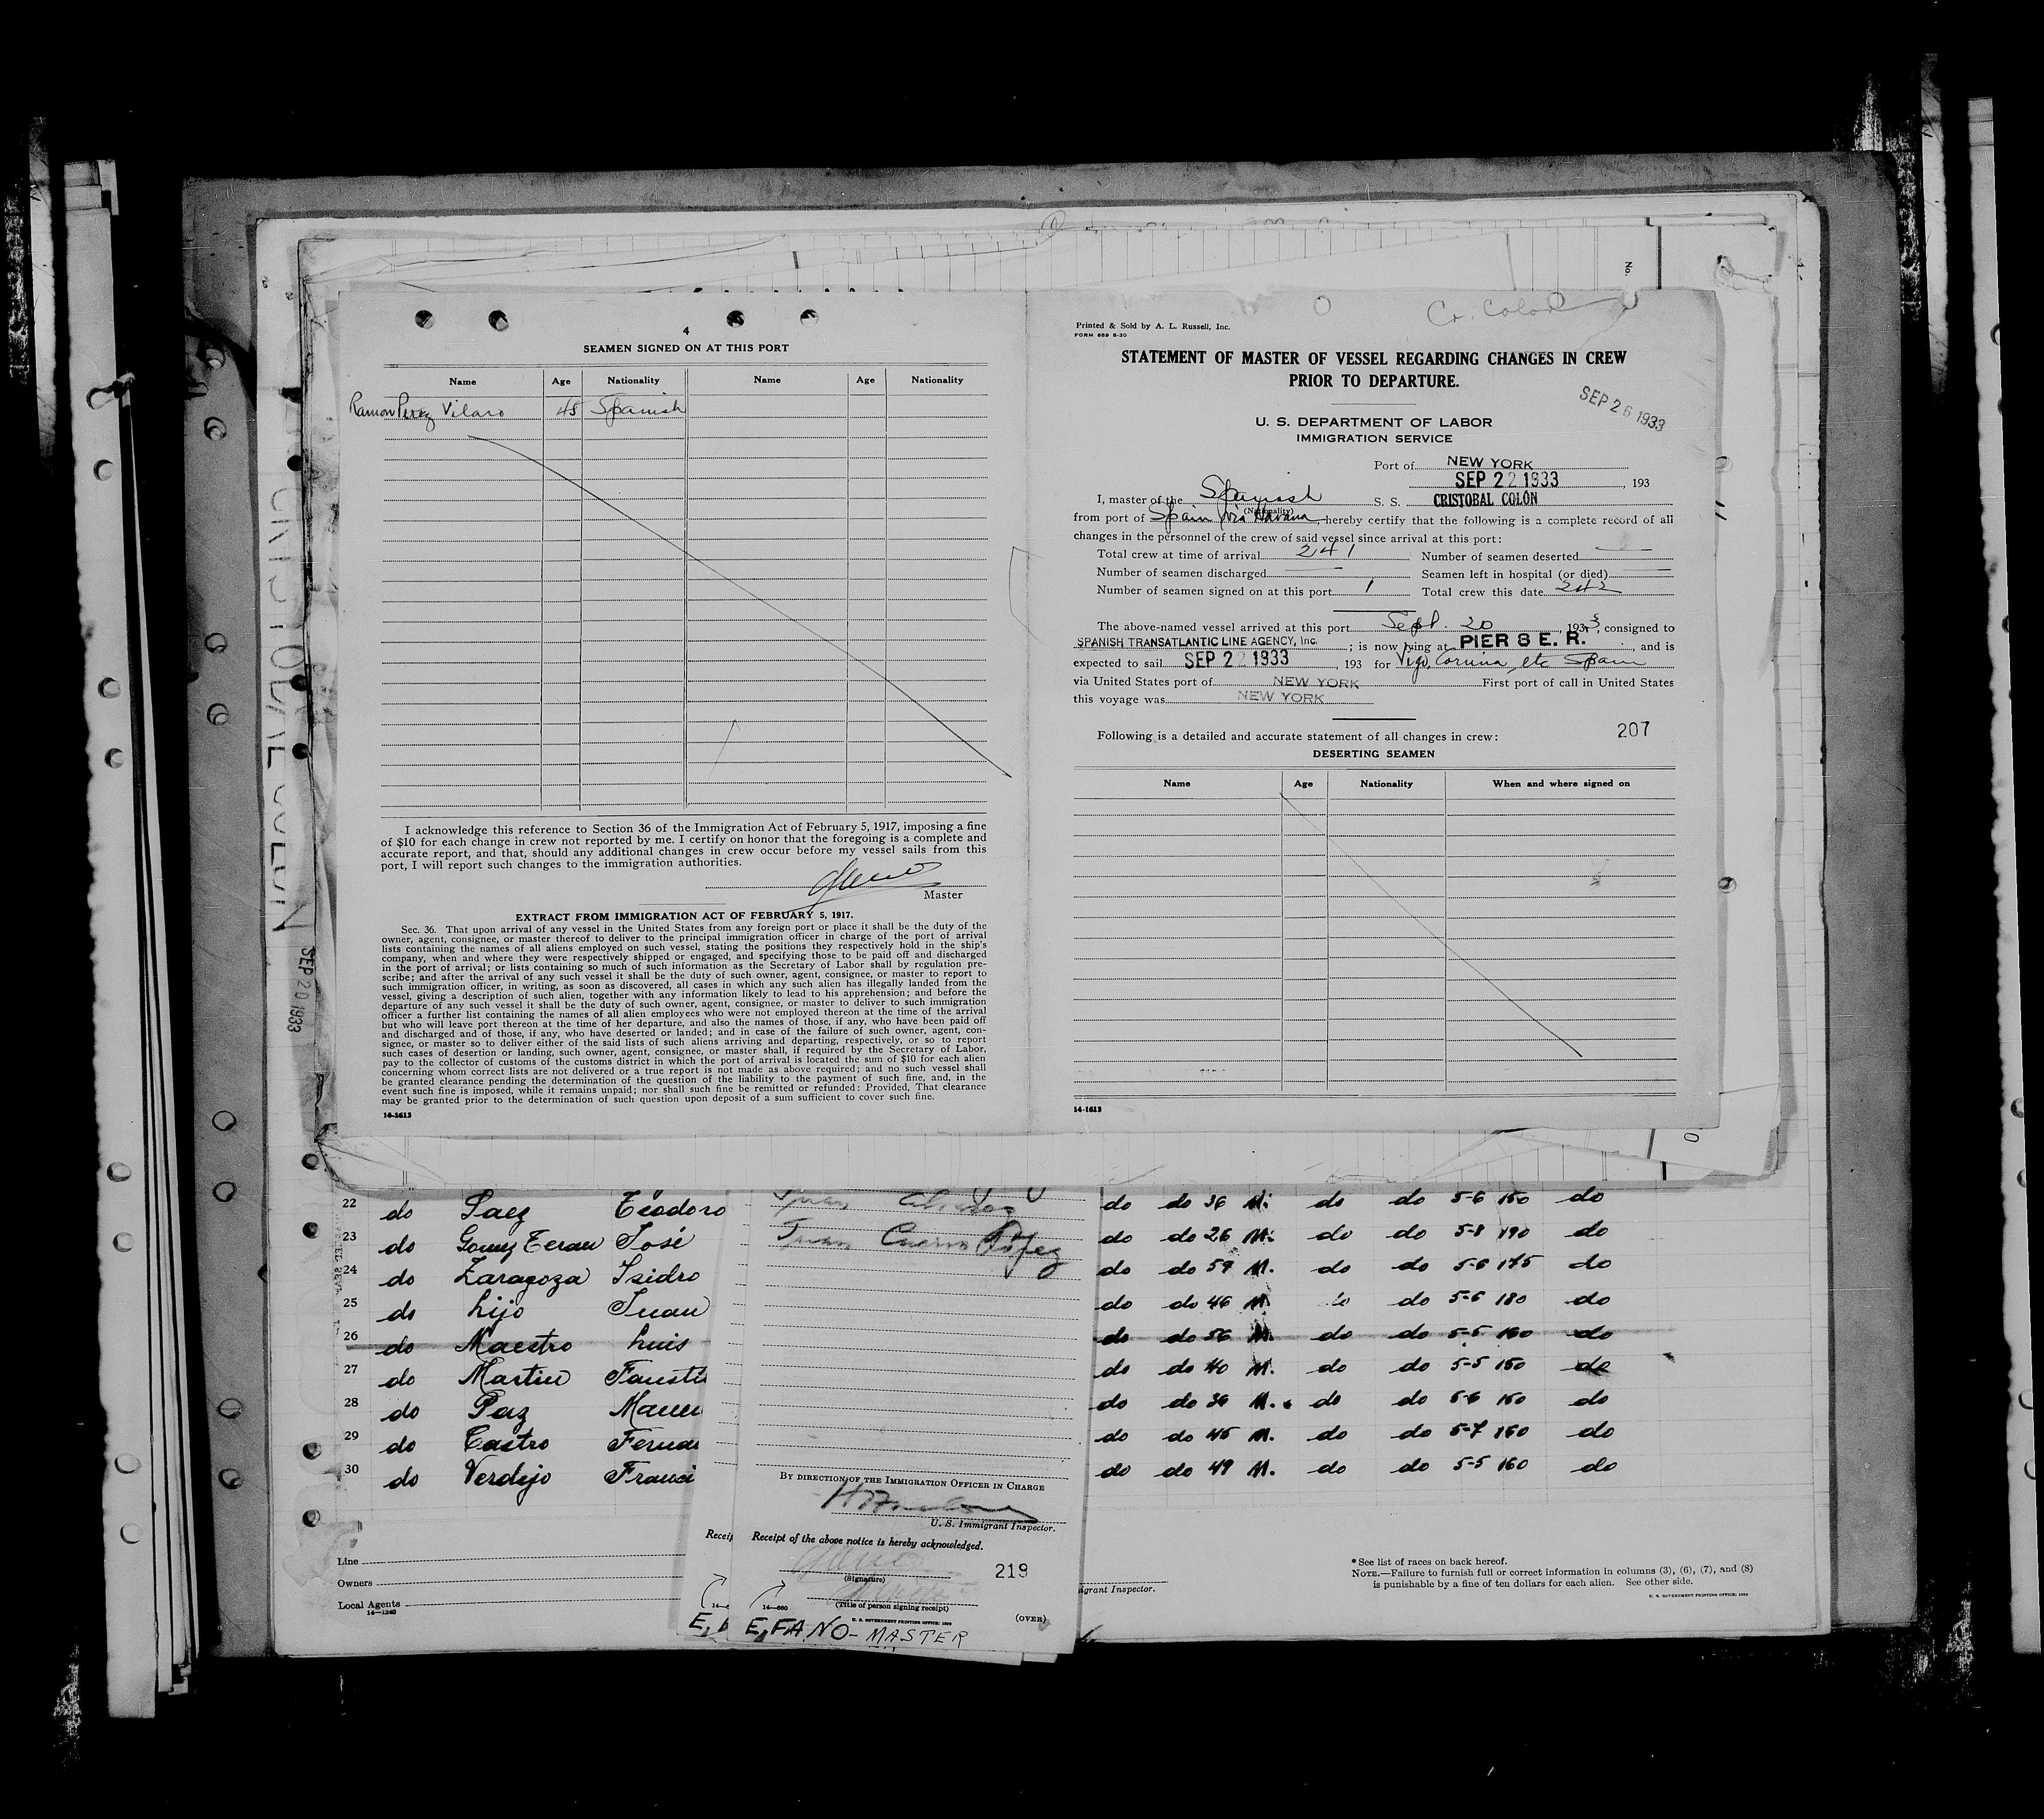 4
SEAMEN SIGNED ON AT THIS PORT
Name Age Nationality Name Age Nationality
Ramon Perez Vilaro 45 Spanish
I acknowledge this reference to Section 36 of the Immigration Act of February 5, 1917, imposing a fine
of $10 for each change in crew not reported by me. I certify on honor that the foregoing is a complete and
accurate report, and that, should any additional changes in crew occur before my vessel sails from this
port, I will report such changes to the immigration authorities.
Master
EXTRACT FROM IMMIGRATION ACT OF FEBRUARY 5, 1917.
Sec. 36. That upon arrival of any vessel in the United States from any foreign port or place it shall be the duty of the
owner, agent, consignee, or master thereof to deliver to the principal immigration officer in charge of the port of arrival
lists containing the names of all aliens employed on such vessel, stating the positions they respectively hold in the ship's
company, when and where they were respectively shipped or engaged, and specifying those to be paid off and discharged
in the port of arrival; or lists containing so much of such information as the Secretary of Labor shall by regulation pre-
scribe; and after the arrival of any such vessel it shall be the duty of such owner, agent, consignee, or master to report to
such immigration officer, in writing, as soon as discovered, all cases in which any such alien has illegally landed from the
vessel, giving a description of such alien, together with any information likely to lead to his apprehension; and before the
departure of any such vessel it shall be the duty of such owner, agent, consignee, or master to deliver to such immigration
officer a further list containing the names of all alien employees who were not employed thereon at the time of the arrival
but who will leave port thereon at the time of her departure, and also the names of those, if any, who have been paid off
and discharged and of those, if any, who have deserted or landed; and in case of the failure of such owner, agent, con-
signee, or master so to deliver either of the said lists of such aliens arriving and departing, respectively, or so to report
such cases of desertion or landing, such owner, agent, consignee, or master shall, if required by the Secretary of Labor,
pay to the collector of customs of the customs district in which the port of arrival is located the sum of $10 for each alien
concerning whom correct lists are not delivered or a true report is not made as above required; and no such vessel shall
be granted clearance pending the determination of the question of the liability to the payment of such fine, and, in the
event such fine is imposed, while it remains unpaid; nor shall such fine be remitted or refunded: Provided, That clearance
may be granted prior to the determination of such question upon deposit of a sum sufficient to cover such fine.
14-1613
Cr. Colon
Printed & Sold by A. L. Russell, Inc.
FORM 689 8-30
STATEMENT OF MASTER OF VESSEL REGARDING CHANGES IN CREW
PRIOR TO DEPARTURE.
SEP 26 1933
U. S. DEPARTMENT OF LABOR
IMMIGRATION SERVICE
Port of NEW YORK
SEP 22 1933, 193
I, master of the Spanish S. S. CRISTOBAL COLÓN
(Nationality)
from port of Spain via Havana, hereby certify that the following is a complete record of all
changes in the personnel of the crew of said vessel since arrival at this port:
Total crew at time of arrival 241 Number of seamen deserted —
Number of seamen discharged — Seamen left in hospital (or died) —
Number of seamen signed on at this port 1 Total crew this date 242
The above-named vessel arrived at this port Sept. 20, 1933, consigned to
SPANISH TRANSATLANTIC LINE AGENCY, Inc.; is now lying at PIER 8 E. R., and is
expected to sail SEP 22 1933, 193 for Vigo, Coruña, etc Spain
via United States port of NEW YORK First port of call in United States
this voyage was NEW YORK
Following is a detailed and accurate statement of all changes in crew: 207
DESERTING SEAMEN
Name Age Nationality When and where signed on
14-1613
No.
CRISTOBAL COLON
SEP 20 1933
22 do Saez Teodoro do do 36 M. do do 5-6 150 do
23 do Gomez Teran José Juan Cuervo Lopez do do 26 M. do do 5-8 190 do
24 do Zaragoza Isidro do do 59 M. do do 5-6 175 do
25 do Lijo Juan do do 46 M. do do 5-6 180 do
26 do Maestro Luis do do 56 M. do do 5-5 160 do
27 do Martin do do 40 M. do do 5-5 150 do
28 do Paz do do 36 M. do do 5-6 150 do
29 do Castro do do 45 M. do do 5-7 160 do
30 do Verdejo do do 49 M. do do 5-5 160 do
BY DIRECTION OF THE IMMIGRATION OFFICER IN CHARGE
U. S. Immigrant Inspector.
Receipt of the above notice is hereby acknowledged.
218
(Signature)
(Title of person signing receipt)
14-660 U. S. GOVERNMENT PRINTING OFFICE: 1929 (OVER)
E. FANO - MASTER
Line
Owners
Local Agents
14-1240
Immigrant Inspector.
* See list of races on back hereof.
NOTE.—Failure to furnish full or correct information in columns (3), (6), (7), and (8)
is punishable by a fine of ten dollars for each alien. See other side.
U. S. GOVERNMENT PRINTING OFFICE: 1929